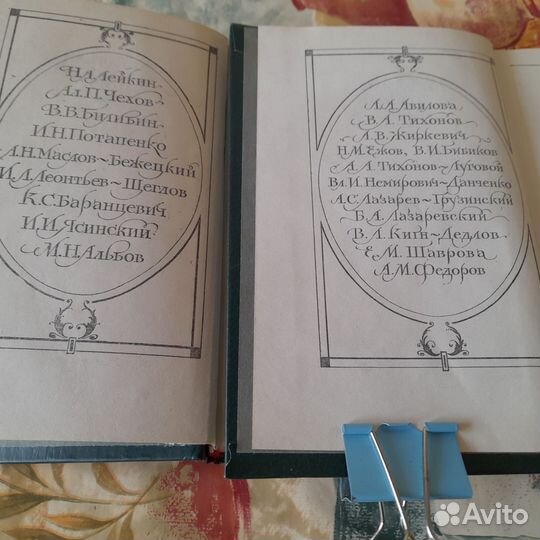 Н.А.Лейкин
Ал.П.Чехов
В.В.Билибин
И.Н.Потапенко
А.Н.Маслов~Бежецкий
И.Л.Леонтьев~Щеглов
К.С.Баранцевич
И.И.Ясинский
М.Н.Альбов
Л.А.Авилова
В.А.Тихонов
А.В.Жиркевич
Н.М.Ежов, В.И.Бибиков
А.А.Тихонов~Луговой
Вл.И.Немирович~Данченко
А.С.Лазарев~Грузинский
Б.А.Лазаревский
В.Л.Кигн~Дедлов
Е.М.Шаврова
А.М.Федоров
Avito